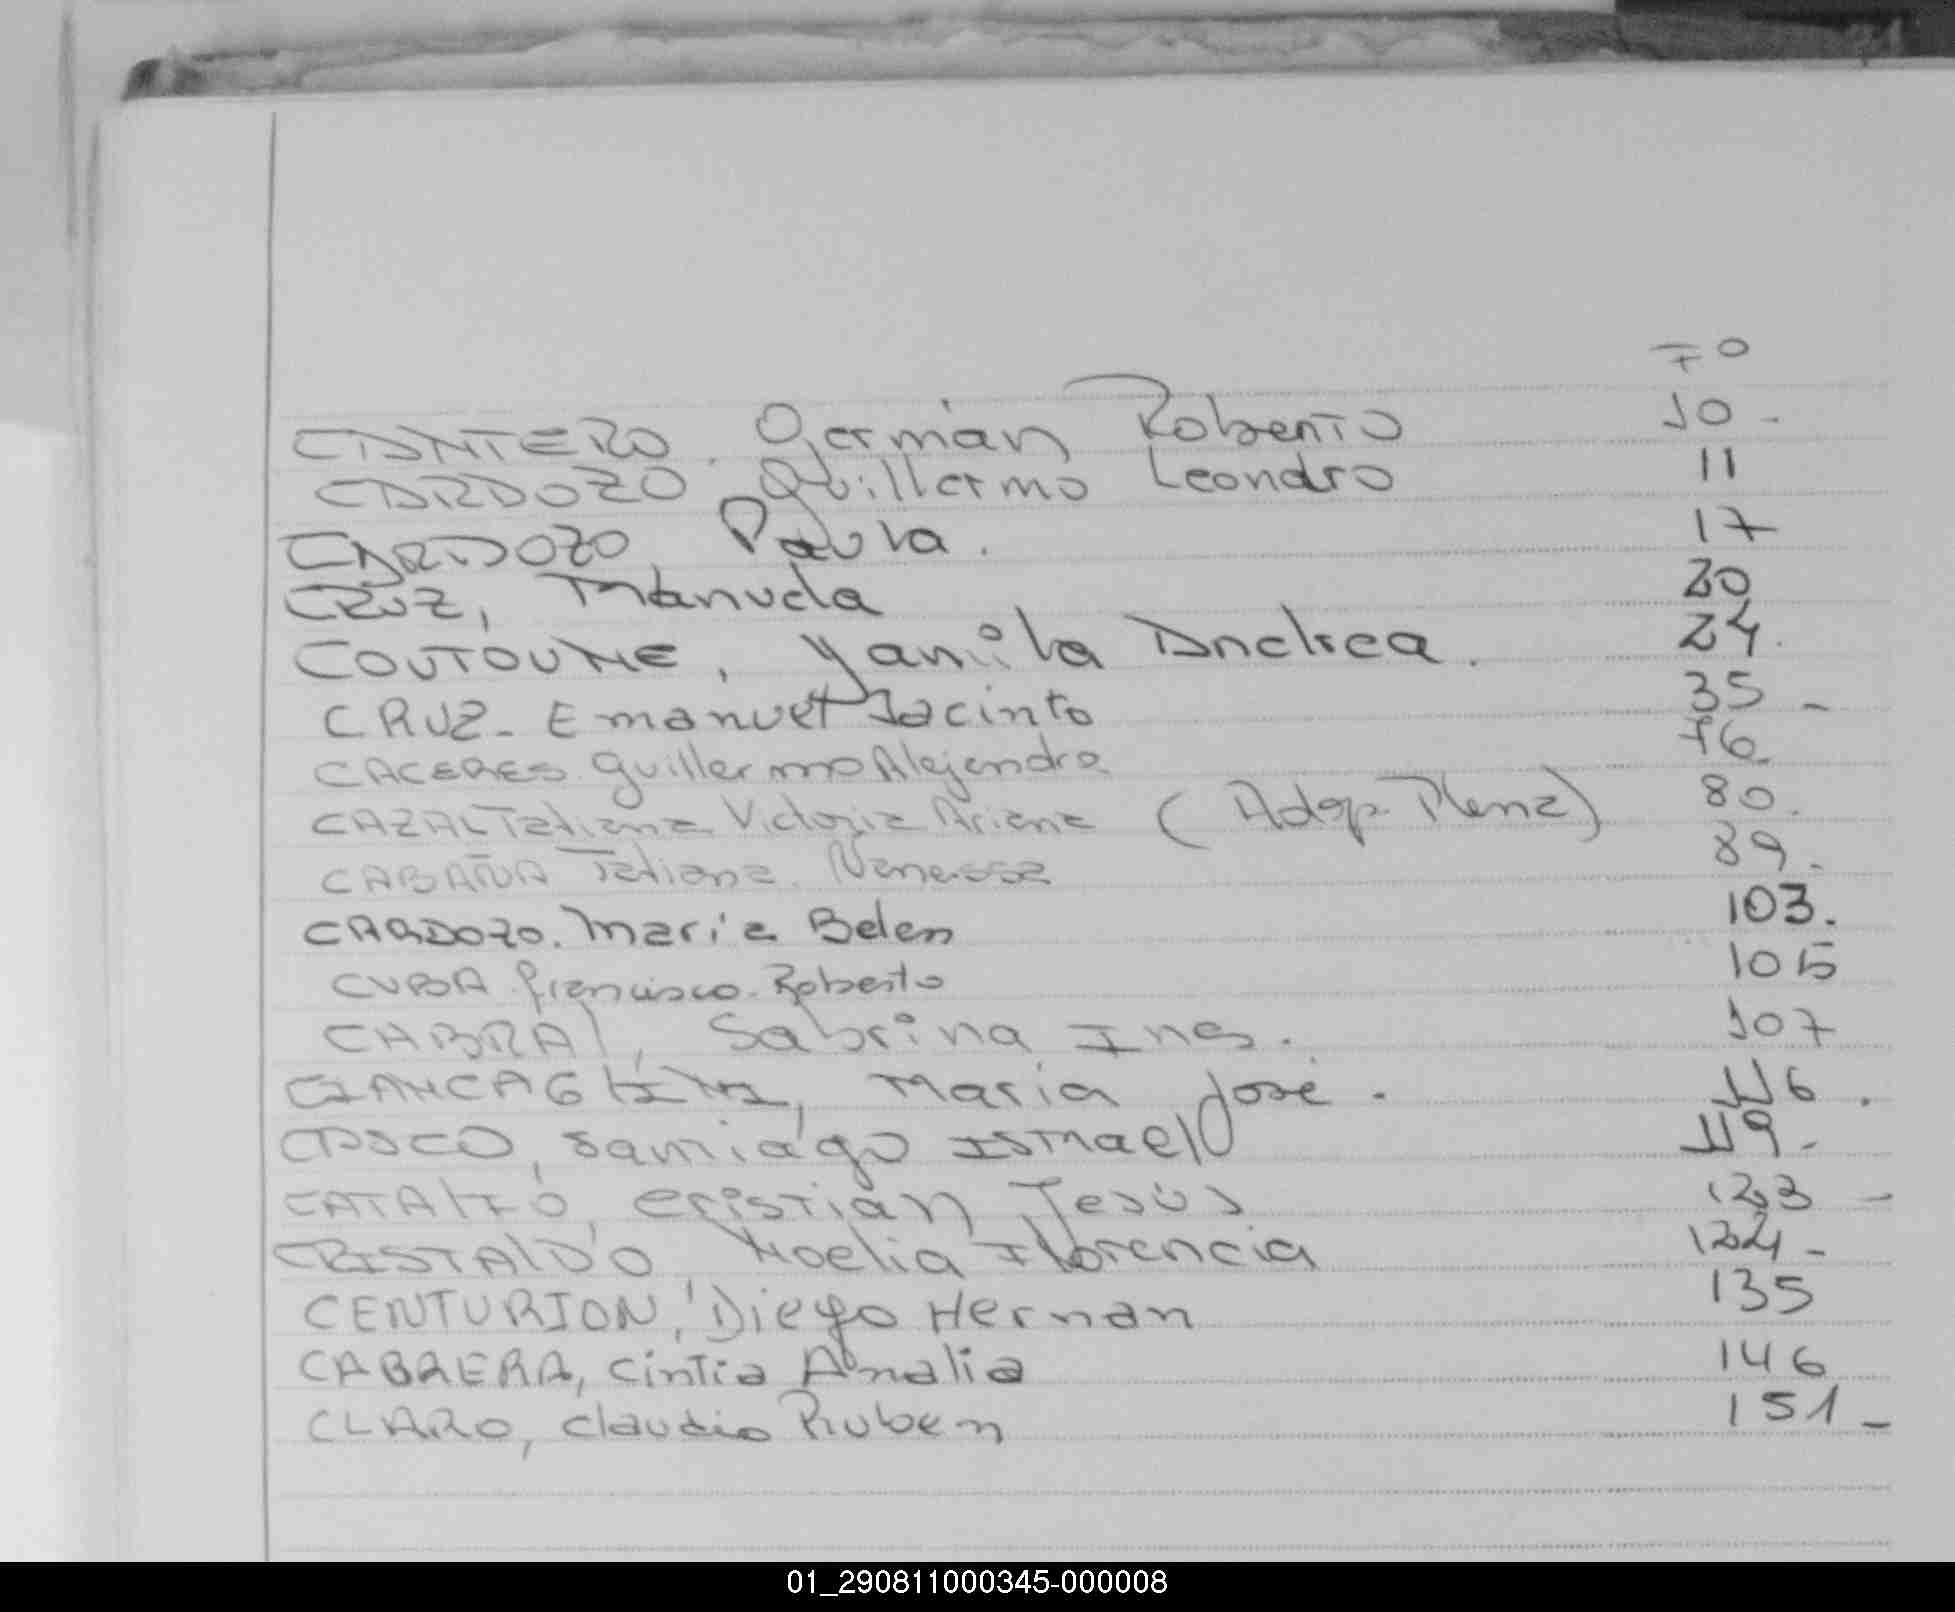 Fº
CANTERO, Germán Roberto 10-
CARDOZO, Guillermo Leandro 11
CARDOZO, Paula. 17
CRUZ, Manuela 20
COUTOUNE, Yamila Andrea. 24.
CRUZ- Emanuel Jacinto 35-
CACERES Guillermo Alejandro 76.
CAZAL Tatiana Victoria Ariana (Adop. Plena) 80.
CABAÑA Tatiana Vanessa 89.
CARDOZO. Maria Belen 103.
CUBA francisco Roberto 105
CABRAl, Sabrina Ines. 107
CIANCAGlINI, Maria José. 116.
CASCO, Santiago Ismael 119-
CATAlDO, Cristian Jesús 123-
CRISTAlDO, Noelia Florencia 124-
CENTURION, Diego Hernan 135
CABRERA, Cintia Amalia 146
CLARO, Claudio Ruben 151-
01_290811000345-000008